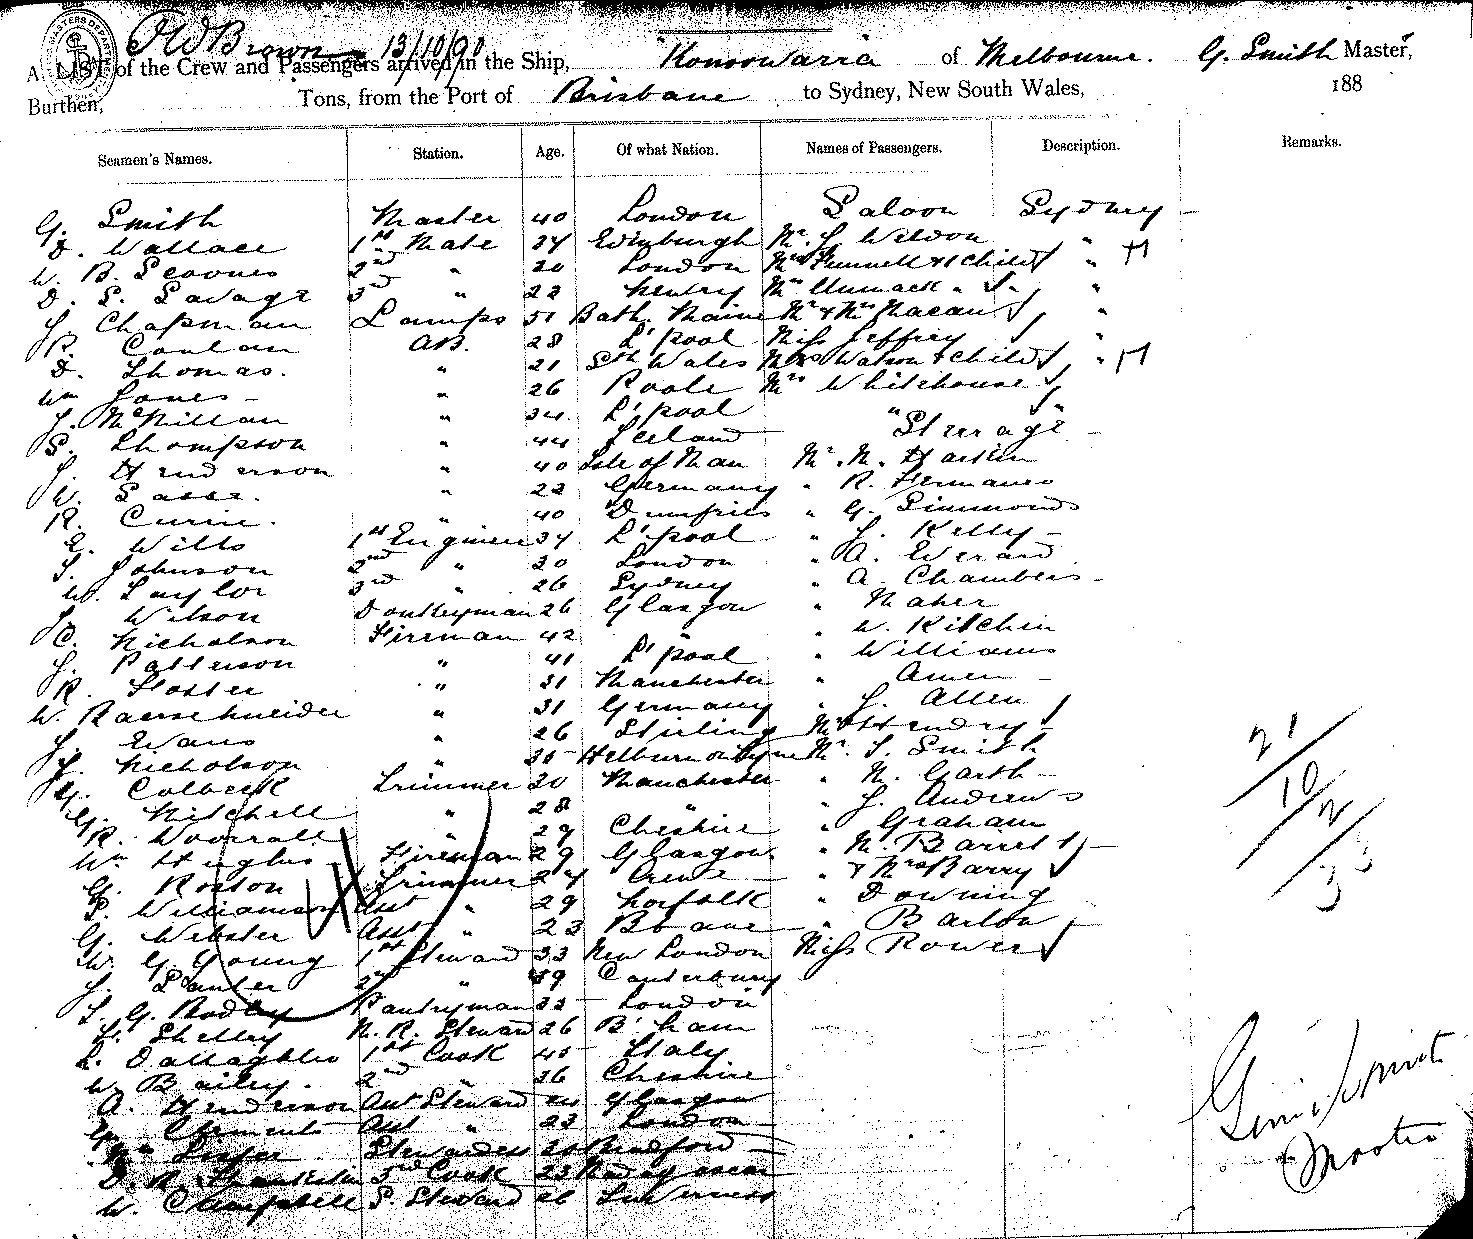 WATERS DEPART
HWBrown 13/10/90
A LIST of the Crew and Passengers arrived in the Ship, "Konoowarra" of Melbourne. G. Smith Master,
Burthen, Tons, from the Port of Brisbane to Sydney, New South Wales, 188
Seamen's Names. Station. Age. Of what Nation. Names of Passengers. Description. Remarks.
G. Smith Master 40 London Saloon Sydney
D. Wallace 1st Mate 34 Edinburgh Mr. J. Weldon "
W. B. 2nd " 30 London Mrs & Child "
D. L. Savage 3rd " 22 Mrs "
J. Chapman Lamps 51 Bath. Maine Mr & Mrs Macan "
R. Conlan AB. 28 L'pool Miss Jeffrey "
D. Thomas. " 21 Sth Wales Mrs Watson & Child "
Wm Jones " 26 Poole Mrs Whitehouse
J. McMillan " 34 L'pool
S. Thompson " 44 Iceland "Steerage"
J. Henderson " 40 Isle of Man Mr. M.
W. " 22 Germany " R.
R. Currie. " 40 Dumfries " G. Simmonds
E. Wills 1st Engineer 34 L'pool " J. Kelly
J. Johnson 2nd " 30 London " A. Everard
W. Taylor 3rd " 26 Sydney " A. Chambers
J. Wilson Donkeyman 26 Glasgow " Maher
C. Nicholson Fireman 42 " " W. Kitchin
J. Patterson " 41 L'pool " Williams
R. Foster " 31 Manchester "
W. " 31 Germany " J. Allen
J. Evans " 26 Stirling Mrs Hendry
J. Nicholson " 35 Hebburn on Tyne Mr. J. Smith
G. Colbeck Trimmer 30 Manchester " M. Garth
G. Mitchell " 28 " " J. Andrews
R. Worrall " 29 Cheshire " Graham
Wm Hughes Fireman 29 Glasgow " M. Barrett
G. Roston Trimmer 24 Crewe " & Mrs Barry
P. Williamson Asst " 29 Norfolk " Downing
G. Webster Asst " 23 " Barton
W. G. Young 1st Steward 33 New London Miss Rower
J. 2nd " 39 Canterbury
T. G. Bodley Pantryman 33 London
H. Shelley M. R. Steward 26 B'ham
L. Dallaghlio 1st Cook 45 Italy
W. Bailey. 2nd " 36 Cheshire
A. Henderson Ast Steward Glasgow
G. Clements Ast " 23 London
Mrs Stewardess 30 Bradford
D. R. Franklin 3rd Cook 23 Madagascar
W. Campbell S. Steward 26 Inverness
21/10/2/33
Smith
Master